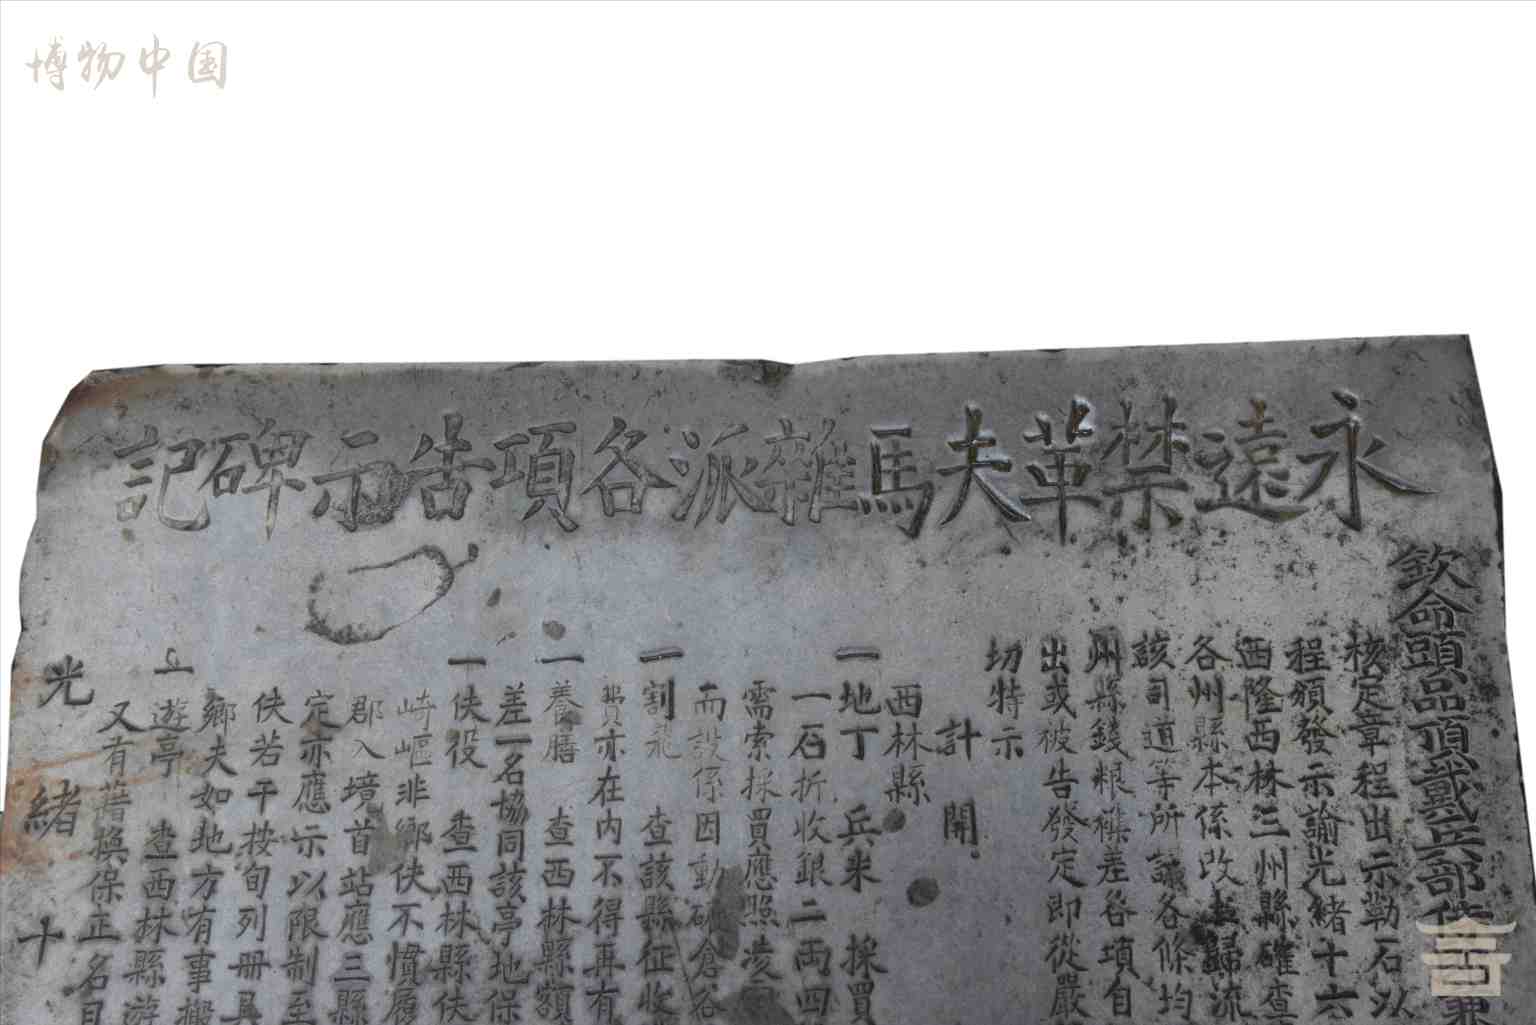 博物中国
永遠禁革夫馬雜派各項告示碑記
欽命頭品頂戴兵部
核定章程出示勒石以
程頒發示諭光緒十六
西隆西林三州縣確查
各州縣本係改土歸流
該司道等所議各條均
州縣錢粮襍差各項自
出或被告發定即從嚴
切特示
計開
西林縣
一地丁 兵米 採買
一石折收銀二両四
需索採買應照
而設係因動碾倉谷
一割 查該縣征收
費亦在內不得再有
一養膳 查西林縣額
差一名協同該亭地保
一伕役 查西林縣伕
崎嶇非鄉伕不慣履
郡入境首站應三縣
定亦應示以限制至
伕若干按旬列册具
鄉夫如地方有事搬
一遊亭 查西林縣遊
又有藉換保正名目
光緒十